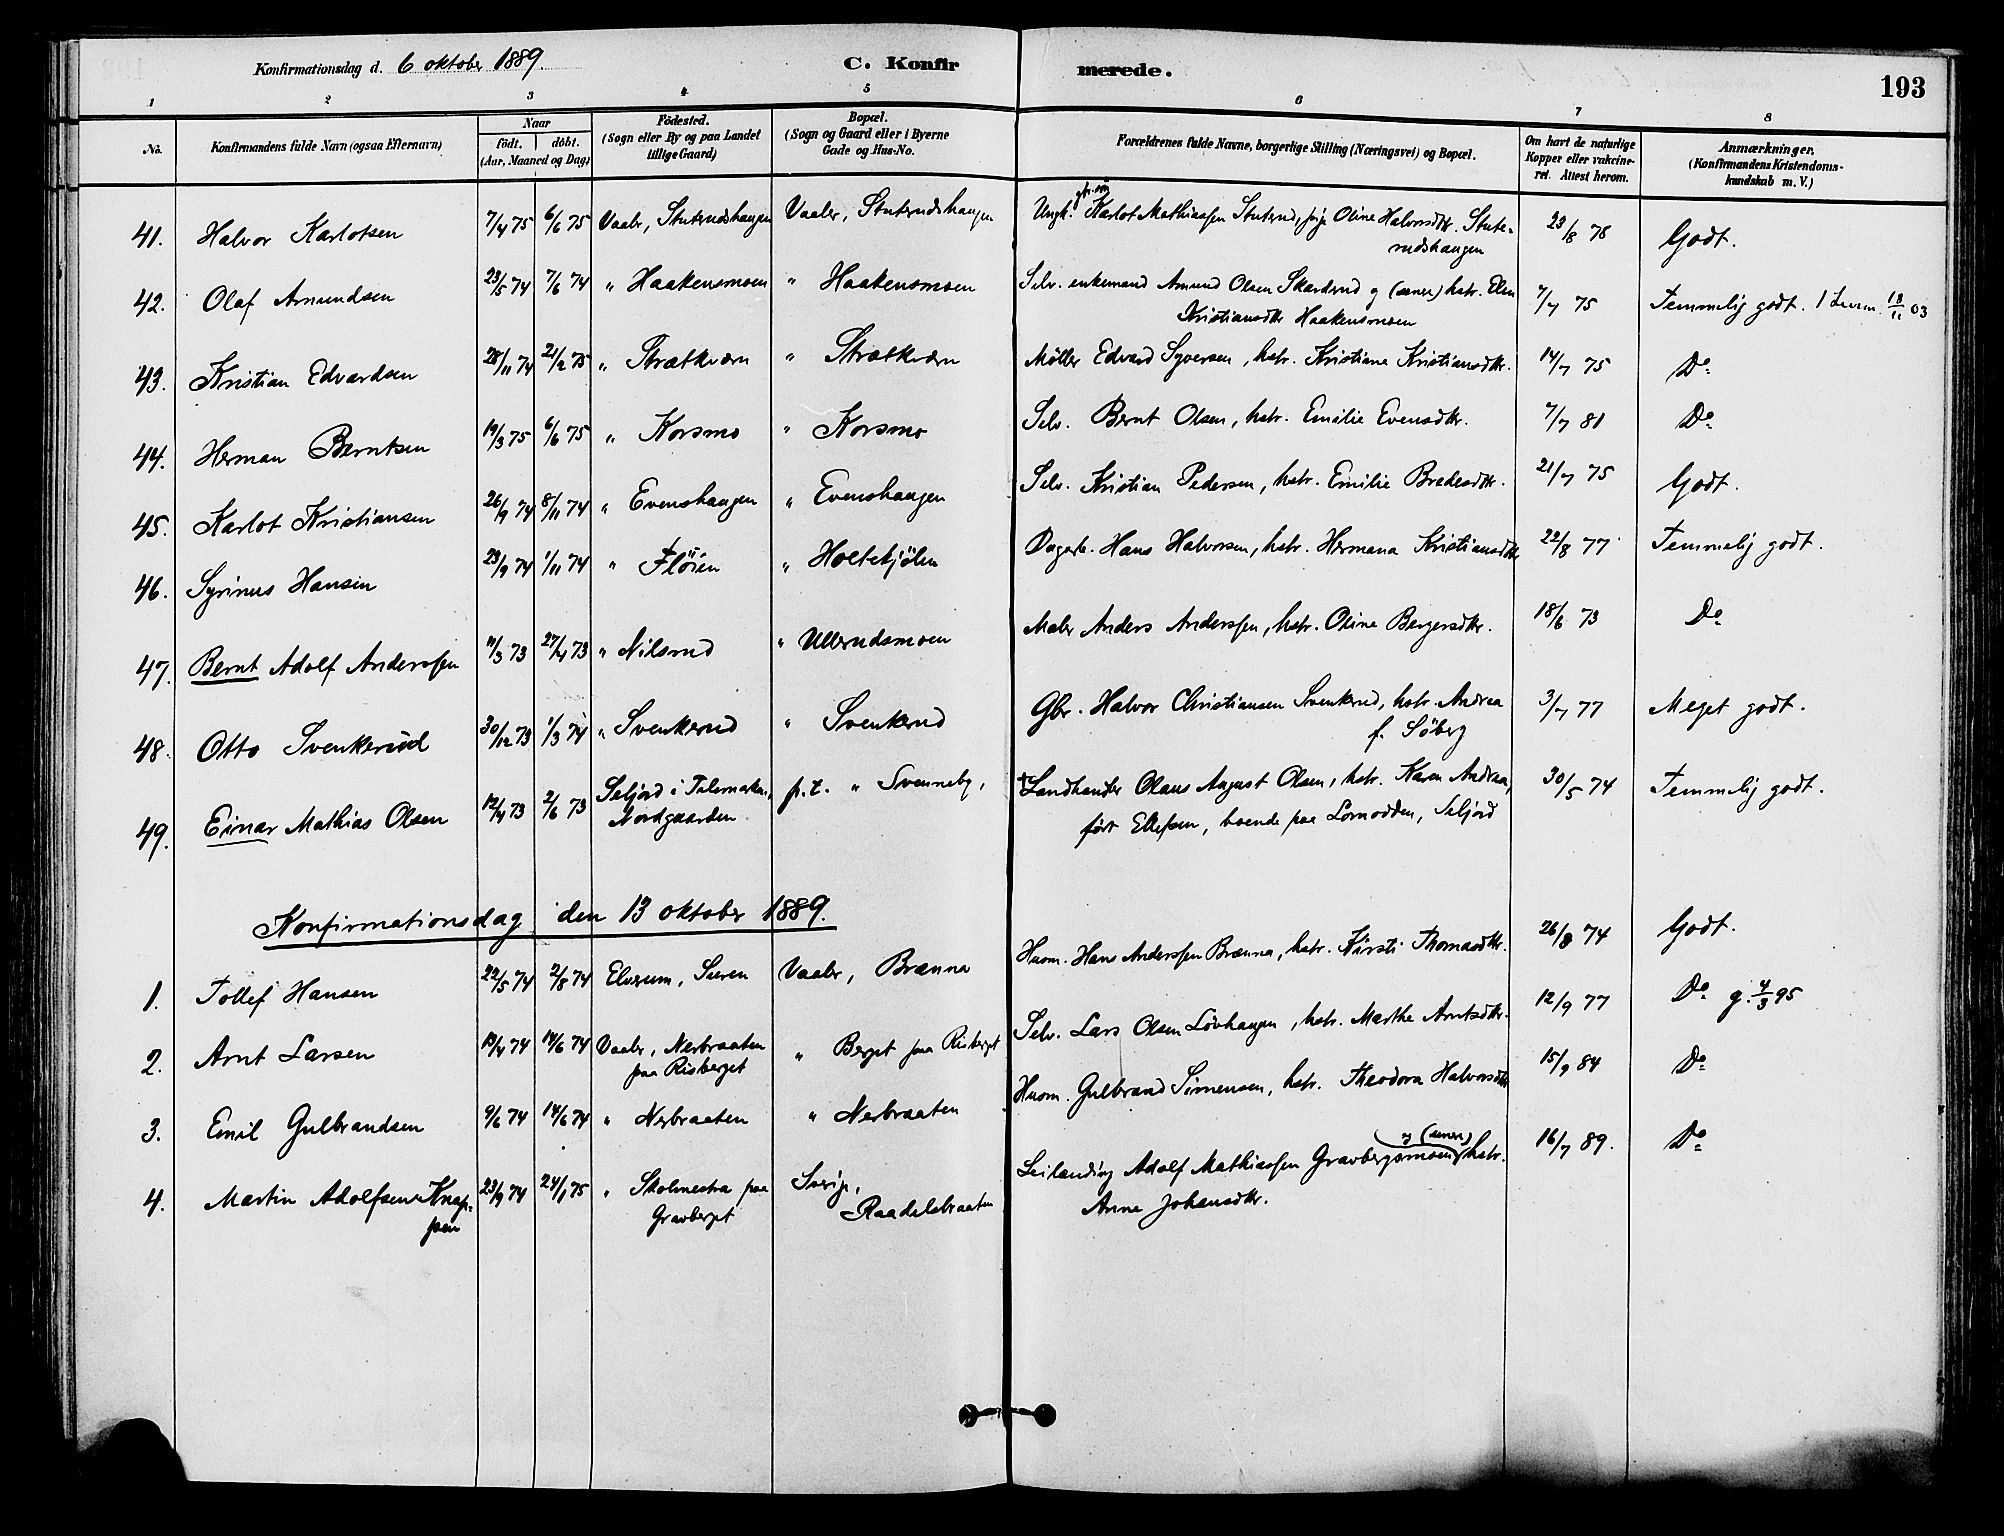 Konfirmationsdag d. 6 oktober 1889.
C. Konfirmerede.
193
1 2 3 4 5 6 7 8
No.
Konfirmandens fulde Navn (ogsaa Efternavn)
Naar
födt. döbt.
(Aar, Maaned og Dag)
Födested.
(Sogn eller By og paa Landet
tillige Gaard)
Bopæl.
(Sogn og Gaard eller i Byerne
Gade og Hus-No.
Forældrenes fulde Navne, borgerlige Stilling (Næringsvei) og Bopæl.
Om havt de naturlige
Kopper eller vakcine-
ret. Attest herom.
Anmærkninger.
(Konfirmandens Kristendoms-
kundskab m. V.)
41. Halvor Karlotsen 7/4 75 6/6 75 Vaaler, Stuterudshaugen Vaaler, Stuterudshaugen Ungk. Karlot Mathiassen Stuterud, pige Oline Halvorsdtr. Stute- 23/8 78 Godt.
rudshaugen
42. Olaf Amundsen 23/5 74 7/6 74 " Haakensmoen " Haakensmoen Selv. enkemand Amund Olsen Skarderud og (senere) hstr. Elen 7/7 75 Temmelig godt. 18/11 03
Kristiansdtr Haakensmoen
43. Kristian Edvardsen 28/11 74 21/2 75 " Strætkværn " Strætkværn Møller Edvard Syversen, hstr. Kristiane Kristiansdtr. 14/7 75 Do
44. Herman Berntsen 19/3 75 6/6 75 " Korsmo " Korsmo Selv. Bernt Olsen, hstr. Emilie Evensdtr. 7/7 81 Do
45. Karlot Kristiansen 26/9 74 8/11 74 " Evenshaugen " Evenshaugen Selv. Kristian Pedersen, hstr. Emilie Bredesdtr. 21/7 75 Godt.
46. Syrinus Hansen 23/9 74 1/11 74 " Fløien " Holtekjølen Dagarb. Hans Halvorsen, hstr. Hermana Kristiansdtr 22/8 77 Temmelig godt.
47. Bernt Adolf Anderssen 11/3 73 27/4 73 " Nilsrud " Ullerudsmoen Maler Anders Anderssen, hstr. Oline Bergersdtr. 18/6 73 Do
48. Otto Svenkerud 30/12 73 1/3 74 " Svenkerud " Svenkerud Gbr. Halvor Christiansen Svenkerud, hstr. Andrea 3/7 77 Meget godt.
f. Söberg
49. Einar Mathias Olsen 12/4 73 2/6 73 Seljord i Telemarken, p.t. " Svenneby, Landhandler Olaus August Olsen, hstr. Karen Andrea, 30/5 74 Temmelig godt.
Nordgaarden födt Ellefsen, boende paa Lomodden, Seljord
Konfirmationsdag den 13 oktober 1889.
1. Tollef Hansen 22/5 74 2/8 74 Elverum, Særen Vaaler, Brænna Husm. Hans Anderssen Brænna, hstr. Kirsti Thomasdtr. 26/8 74 Godt.
2. Arnt Larsen 19/4 74 14/6 74 Vaaler, Nerbraaten " Berget paa Risberget Selv. Lars Olsen Lövhaugen, hstr. Marthe Arntsdtr. 12/9 77 Do g. 4/3 95
paa Risberget
3. Emil Gulbrandsen 9/6 74 14/6 74 " Nerbraaten " Nerbraaten Husm. Gulbrand Simensen, hstr. Theodora Halvorsdtr 15/9 84 Do
4. Martin Adolfsen Knap- 23/9 74 24/1 75 " Skolmestra paa Sverige, Leilending Adolf Mathiassen Gravbergsmoen og (senere) hstr. 16/7 89. Do
pen Gravberget Raadelsbraaten Anne Johansdtr.